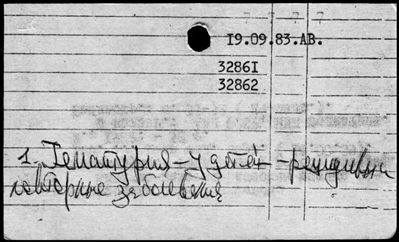 19.09.83.АВ.
32861
32862
1. Гематурия – у детей – рецидивы
повторные заболевания